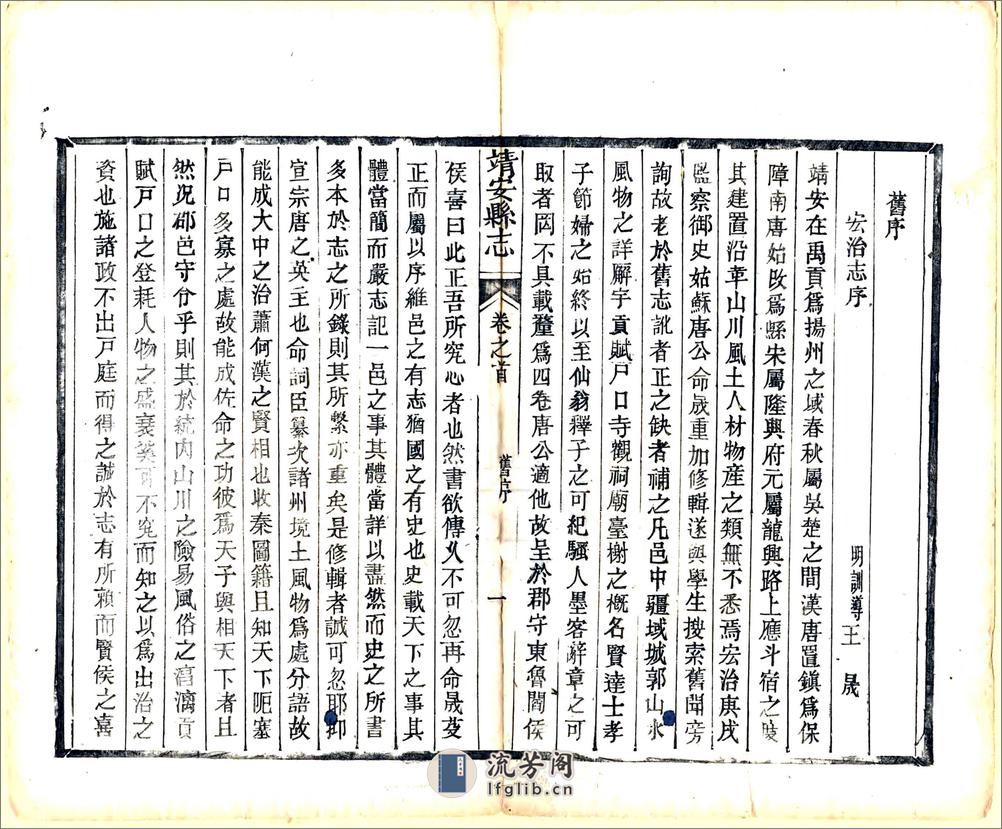 舊序
宏治志序
明訓導王晟
靖安在禹貢爲揚州之域春秋屬吳楚之間漢唐置鎮爲保
障南唐始改爲縣宋屬隆興府元屬龍興路上應斗宿之
其建置沿革山川風土人材物產之類無不悉焉宏治庚戌
監察御史姑蘇唐公命晟重加修輯遂與學生搜索舊聞旁
詢故老於舊志訛者正之缺者補之凡邑中疆域城郭山水
風物之詳廨宇貢賦戸口寺觀祠廟臺榭之概名賢達士孝
子節婦之始終以至仙翁釋子之可紀騷人墨客辭章之可
取者罔不具載釐爲四卷唐公適他故呈於郡守東魯閻侯
靖安縣志
卷之首
舊序
一
侯喜曰此正吾所究心者也然書欲傳久不可忽再命晟芟
正而屬以序維邑之有志猶國之有史也史載天下之事其
體當簡而嚴志記一邑之事其體當詳以盡然而史之所書
多本於志之所錄則其所繫亦重矣是修輯者誠可忽耶抑
宣宗唐之英主也命詞臣纂次諸州境土風物爲處分語故
能成大中之治蕭何漢之賢相也收秦圖籍且知天下阨塞
戸口多寡之處故能成佐命之功彼爲天子與相天下者且
然况郡邑守令乎則其於統內山川之險易風俗之淳漓貢
賦戸口之登耗人物之盛衰奚可不究而知之以爲出治之
資也施諸政不出戸庭而得之誠於志有所賴而賢侯之喜
流芳阁
lfglib.cn